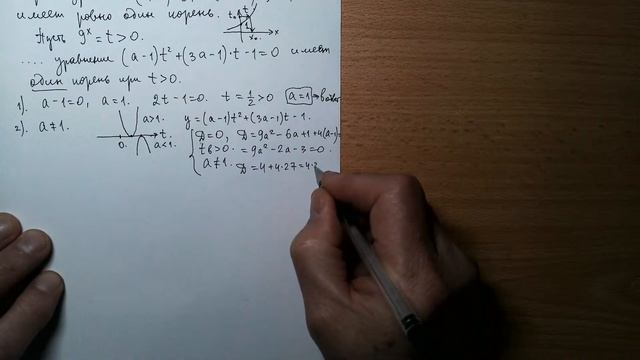 имеет ровно один корень.
t₀ t x₀ x
Пусть 9^x = t > 0.
.... уравнение (a-1)t² + (3a-1)·t - 1 = 0 имеет
один корень при t > 0.
1). a-1=0, a=1. 2t-1=0. t = 1/2 > 0 a=1 →
2). a≠1. a>1. 0. t. a<1. y = (a-1)t² + (3a-1)t - 1.
D=0, D = 9a² - 6a + 1 + 4(a-1) =
tв > 0. = 9a² - 2a - 3 = 0.
a≠1. D = 4 + 4·27 = 4·2